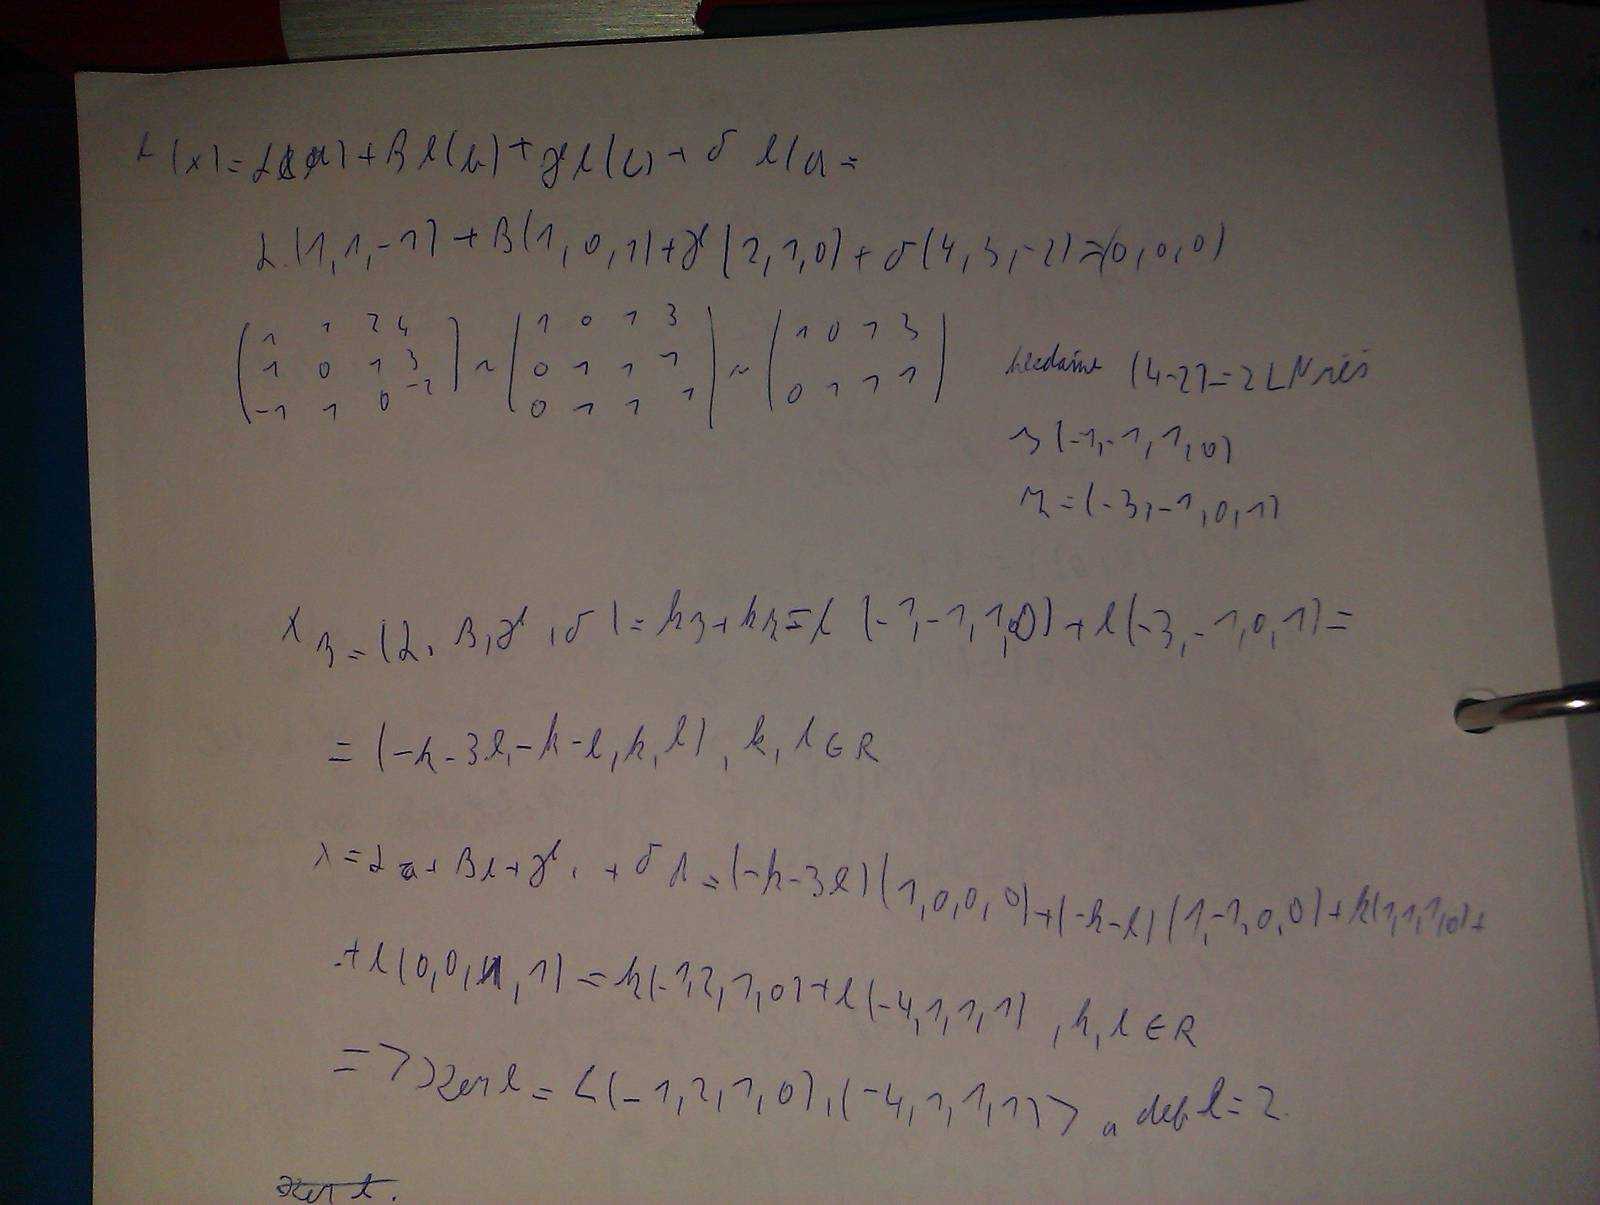 l(x) = α l(a) + β l(b) + γ l(c) + δ l(d) =
α (1,1,-1) + β (1,0,1) + γ (2,1,0) + δ (4,3,-2) = (0,0,0)
( 1 1 2 4 ) ~ ( 1 0 1 3 ) ~ ( 1 0 1 3 )
( 1 0 1 3 ) ( 0 1 1 1 ) ( 0 1 1 1 )
( -1 1 0 -2 ) ( 0 1 1 1 )
hledáme (4-2) = 2 LN řeš
(-1,-1,1,0)
= (-3,-1,0,1)
x B = (α, β, γ, δ) = k (-1,-1,1,0) + l (-3,-1,0,1) =
= (-k-3l, -k-l, k, l), k, l ∈ R
x = α a + β b + γ + δ = (-k-3l) (1,0,0,0) + (-k-l) (1,-1,0,0) + k (1,1,1,0) +
+ l (0,0,1,1) = k (-1,2,1,0) + l (-4,1,1,1), k, l ∈ R
=> Ker l = < (-1,2,1,0), (-4,1,1,1) > a def l = 2
Ker l.